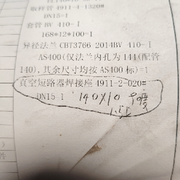 DN15-1
套管 BV 410-1
168*12*100-1
异径法兰 CBT3766-2014BW 410-1
AS400(仅法兰内孔为144(配管
140),其余尺寸均按AS400标)-1
真空短路器焊接座 4911-2-020=
DN15 1 140X10